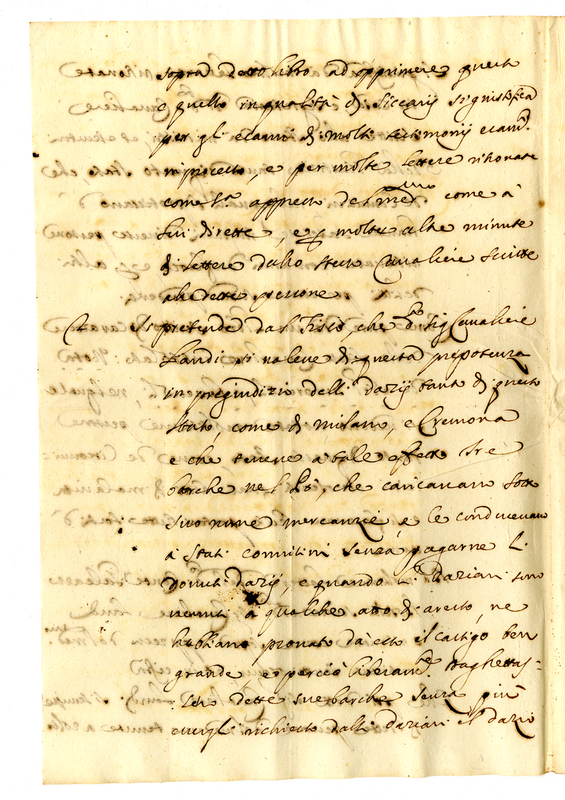 sopra detto libro ad opprimere questa
e quello in qualità di siccarij si giustifica
per gl'esami di molti testimonij esam.
in processo, e per molte lettere ritrovate
come s.ª appresso del med.mo come à
lui dirette, e di molte altre minute
di lettere dallo stesso Cavaliere scritte
alle dette persone
Si pretende dal Fisco che d.º Sig. Cavaliere
Landi si valeva di questa prepotenza
in pregiudizio delli dazij tanto di questo
stato, come di milano, e Cremona
e che teneva à tale effetto tre
barche nel Pò, che caricavano sotto
suo nome mercanzie, e le conducevano
à Stati convicini senza pagarne li
dovuti dazij, e quando li Daziari sono
venuti à qualche atto di aresto, ne
habbiano provato da esso il castigo ben
grande e perciò liberam.e traghettas-
sero dette sue barche senza più
essergli richiesto dalli daziari il dazio